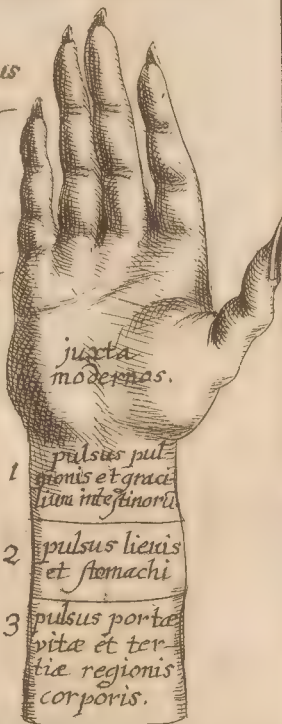 us
juxta
modernos.
1 pulsus pul-
monis et graci
lium intestinorũ
2 pulsus lienis
et stomachi
3 pulsus portæ
vitæ et ter-
tiæ regionis
corporis.